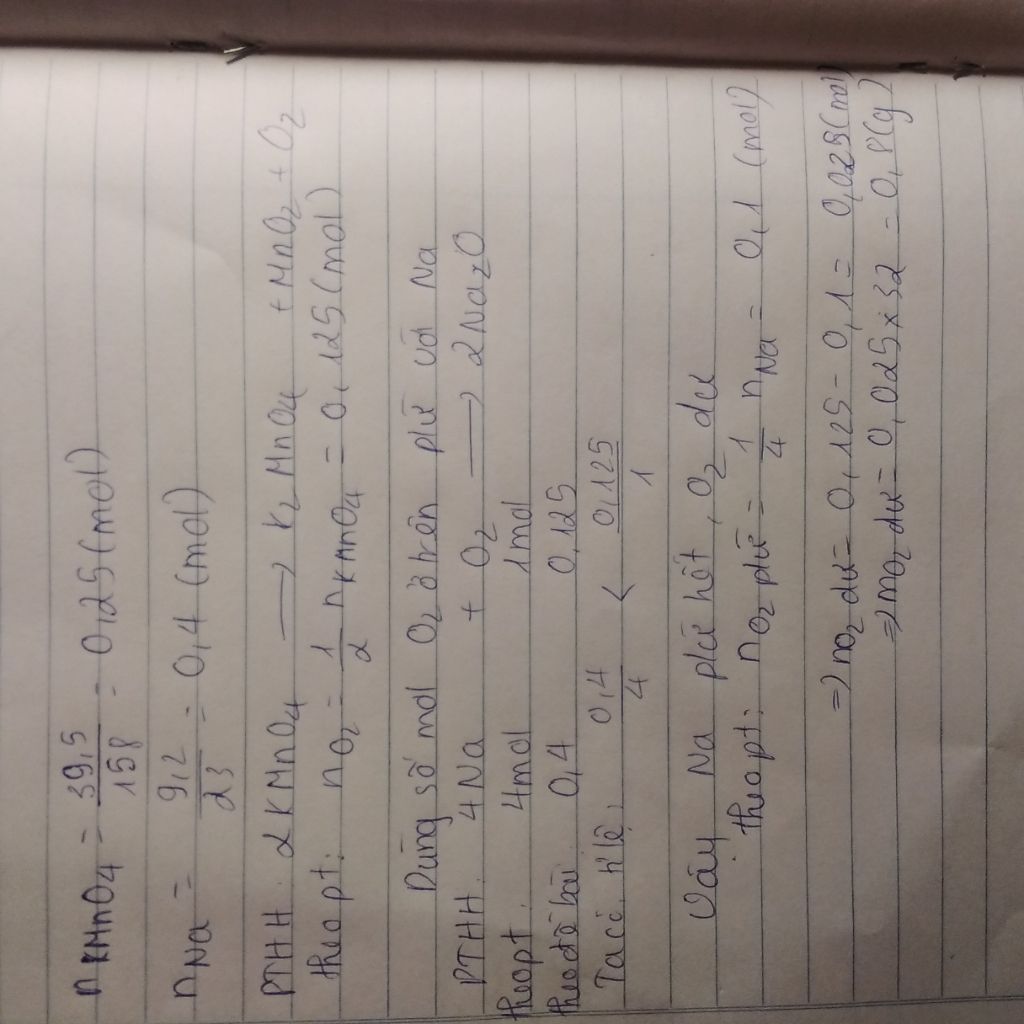 n KMnO4 = 39,5/158 = 0,25 (mol)
n Na = 9,2/23 = 0,4 (mol)
PTHH: 2KMnO4 → K2MnO4 + MnO2 + O2
theo pt: nO2 = 1/2 nKMnO4 = 0,125 (mol)
Dùng số mol O2 ở trên pứ với Na
PTHH: 4Na + O2 → 2Na2O
theo pt: 4mol 1mol
theo đề bài 0,4 0,125
Ta có tỉ lệ: 0,4/4 < 0,125/1
Vậy Na pứ hết, O2 dư
theo pt: nO2 pứ = 1/4 nNa = 0,1 (mol)
=> nO2 dư = 0,125 - 0,1 = 0,025 (mol)
=> mO2 dư = 0,025 x 32 = 0,8 (g)